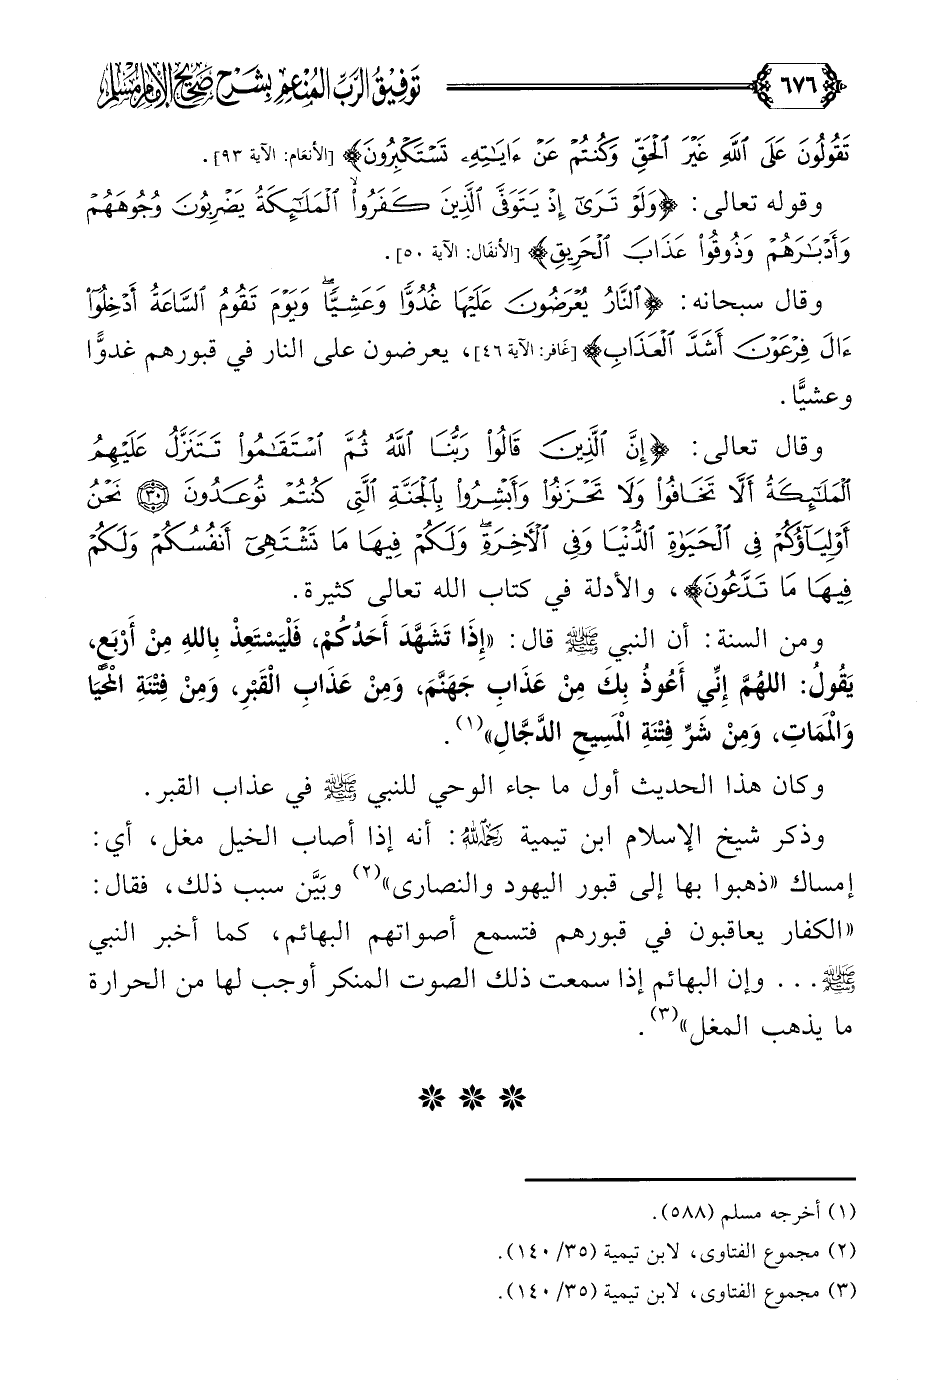 ٦٧٦ توفيق الرب المنعم بشرح صحيح الإمام مسلم
تَقُولُونَ عَلَى ٱللَّهِ غَيْرَ ٱلْحَقِّ وَكُنتُمْ عَنْ ءَايَـٰتِهِۦ تَسْتَكْبِرُونَ﴾ [الأنعَام: الآية ٩٣].
وقوله تعالى: ﴿وَلَوْ تَرَىٰٓ إِذْ يَتَوَفَّى ٱلَّذِينَ كَفَرُوا۟ ۙ ٱلْمَلَـٰٓئِكَةُ يَضْرِبُونَ وُجُوهَهُمْ
وَأَدْبَـٰرَهُمْ وَذُوقُوا۟ عَذَابَ ٱلْحَرِيقِ﴾ [الأنفَال: الآية ٥٠].
وقال سبحانه: ﴿ٱلنَّارُ يُعْرَضُونَ عَلَيْهَا غُدُوًّا وَعَشِيًّا ۖ وَيَوْمَ تَقُومُ ٱلسَّاعَةُ أَدْخِلُوٓا۟
ءَالَ فِرْعَوْنَ أَشَدَّ ٱلْعَذَابِ﴾ [غَافر: الآية ٤٦]، يعرضون على النار في قبورهم غدوًّا
وعشيًّا.
وقال تعالى: ﴿إِنَّ ٱلَّذِينَ قَالُوا۟ رَبُّنَا ٱللَّهُ ثُمَّ ٱسْتَقَـٰمُوا۟ تَتَنَزَّلُ عَلَيْهِمُ
ٱلْمَلَـٰٓئِكَةُ أَلَّا تَخَافُوا۟ وَلَا تَحْزَنُوا۟ وَأَبْشِرُوا۟ بِٱلْجَنَّةِ ٱلَّتِى كُنتُمْ تُوعَدُونَ ٣٠ نَحْنُ
أَوْلِيَآؤُكُمْ فِى ٱلْحَيَوٰةِ ٱلدُّنْيَا وَفِى ٱلْءَاخِرَةِ ۖ وَلَكُمْ فِيهَا مَا تَشْتَهِىٓ أَنفُسُكُمْ وَلَكُمْ
فِيهَا مَا تَدَّعُونَ﴾، والأدلة في كتاب الله تعالى كثيرة.
ومن السنة: أن النبي ﷺ قال: «إِذَا تَشَهَّدَ أَحَدُكُمْ، فَلْيَسْتَعِذْ بِاللهِ مِنْ أَرْبَعٍ،
يَقُولُ: اللهُمَّ إِنِّي أَعُوذُ بِكَ مِنْ عَذَابِ جَهَنَّمَ، وَمِنْ عَذَابِ الْقَبْرِ، وَمِنْ فِتْنَةِ الْمَحْيَا
وَالْمَمَاتِ، وَمِنْ شَرِّ فِتْنَةِ الْمَسِيحِ الدَّجَّالِ»(١).
وكان هذا الحديث أول ما جاء الوحي للنبي ﷺ في عذاب القبر.
وذكر شيخ الإسلام ابن تيمية رَحِمَهُ اللهُ: أنه إذا أصاب الخيل مغل، أي:
إمساك «ذهبوا بها إلى قبور اليهود والنصارى»(٢) وبَيَّن سبب ذلك، فقال:
«الكفار يعاقبون في قبورهم فتسمع أصواتهم البهائم، كما أخبر النبي
ﷺ... وإن البهائم إذا سمعت ذلك الصوت المنكر أوجب لها من الحرارة
ما يذهب المغل»(٣).
(١) أخرجه مسلم (٥٨٨).
(٢) مجموع الفتاوى، لابن تيمية (٣٥/ ١٤٠).
(٣) مجموع الفتاوى، لابن تيمية (٣٥/ ١٤٠).